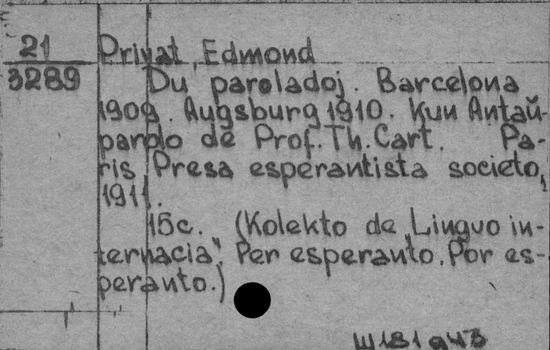 21 Privat, Edmond
3289 Du paroladoj. Barcelona
1909. Augsburg 1910. Kun Antaŭ-
parolo de Prof. Th. Cart. Pa-
ris, Presa esperantista societo,
1911.
15c. (Kolekto de „Lingvo in-
ternacia". Per esperanto. Por es-
peranto.)